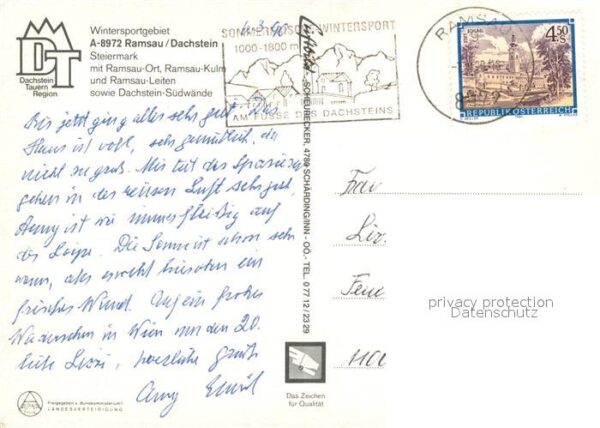 Wintersportgebiet
A-8972 Ramsau/Dachstein
Steiermark
mit Ramsau-Ort, Ramsau-Kulm
und Ramsau-Leiten
sowie Dachstein-Südwände
DT
Dachstein
Tauern
Region
4.3.90
SOMMERFRISCHE WINTERSPORT
1000-1800 m
AM FUSSE DES DACHSTEINS
RAMSAU
4.50
REPUBLIK ÖSTERREICH
Bis jetzt ging alles sehr gut. Das
Haus ist voll, sehr gemütlich, da
nicht zu groß. Mir tut das Spazieren
gehen in der reinen Luft sehr gut,
Anny ist wie immer fleißig auf
der Loipe. Die Sonne ist schon sehr
warm, aber es weht bisschen ein
frisches Wind. Auf ein frohes
Wiedersehen in Wien um den 20.
liebe Lissi, herzliche Grüße
Anny
SCHEURECKER, 4784 SCHÄRDING/INN - OÖ. - TEL. 07712/2329
Frau
privacy protection
Datenschutz
Das Zeichen
für Qualität
Freigegeben v. Bundesministerium f.
LANDESVERTEIDIGUNG